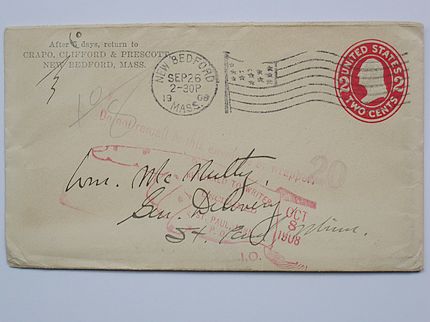 After 5 days, return to
CRAPO, CLIFFORD & PRESCOTT,
NEW BEDFORD, MASS.
NEW BEDFORD
SEP 26
2-30P
19 08
MASS.
UNITED STATES
2 2
TWO CENTS
20
TO WRITER
Wm. McNulty,
Gen. Delivery
St. Paul
ST. PAUL
OCT
8
1908
I.O.